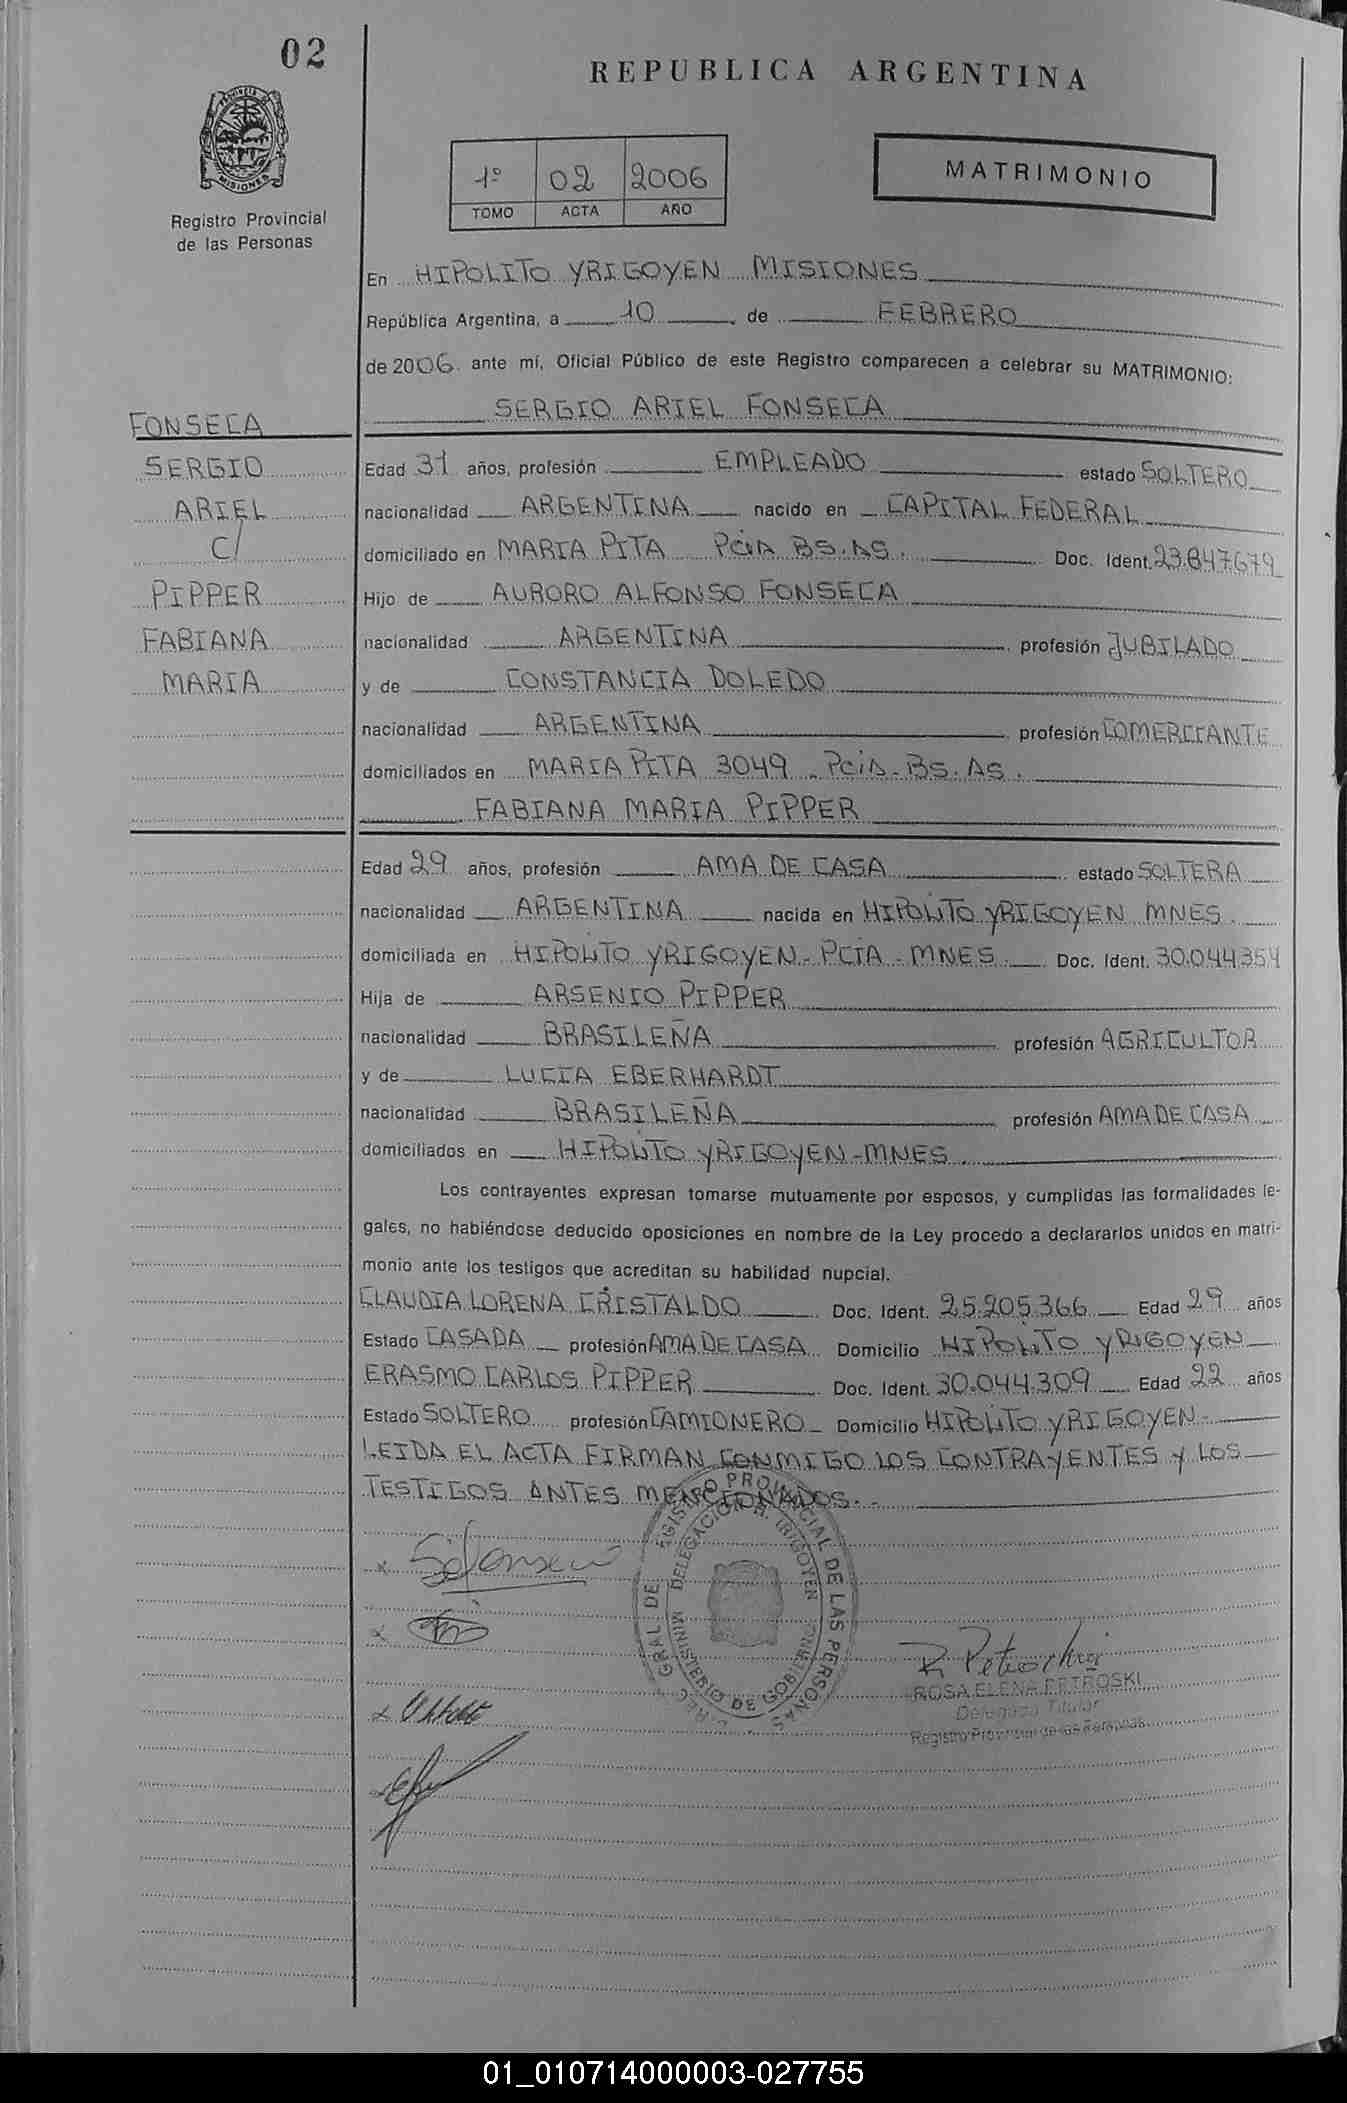 02
REPUBLICA ARGENTINA
PROVINCIA DE MISIONES
Registro Provincial
de las Personas
1º 02 2006
TOMO ACTA AÑO
MATRIMONIO
En HIPOLITO YRIGOYEN MISIONES
República Argentina, a 10 de FEBRERO
de 2006. ante mí, Oficial Público de este Registro comparecen a celebrar su MATRIMONIO:
SERGIO ARIEL FONSECA
FONSECA
SERGIO
ARIEL
C/
PIPPER
FABIANA
MARIA
Edad 31 años, profesión EMPLEADO estado SOLTERO
nacionalidad ARGENTINA nacido en CAPITAL FEDERAL
domiciliado en MARIA PITA PCIA BS.AS. Doc. Ident. 23.847.679
Hijo de AURORO ALFONSO FONSECA
nacionalidad ARGENTINA profesión JUBILADO
y de CONSTANCIA DOLEDO
nacionalidad ARGENTINA profesión COMERCIANTE
domiciliados en MARIA PITA 3049 - PCIA-BS.AS.
FABIANA MARIA PIPPER
Edad 29 años, profesión AMA DE CASA estado SOLTERA
nacionalidad ARGENTINA nacida en HIPOLITO YRIGOYEN MNES.
domiciliada en HIPOLITO YRIGOYEN-PCIA-MNES. Doc. Ident. 30.044.354
Hija de ARSENIO PIPPER
nacionalidad BRASILEÑA profesión AGRICULTOR
y de LUCIA EBERHARDT
nacionalidad BRASILEÑA profesión AMA DE CASA
domiciliados en HIPOLITO YRIGOYEN-MNES.
Los contrayentes expresan tomarse mutuamente por esposos, y cumplidas las formalidades le-
gales, no habiéndose deducido oposiciones en nombre de la Ley procedo a declararlos unidos en matri-
monio ante los testigos que acreditan su habilidad nupcial.
CLAUDIA LORENA CRISTALDO Doc. Ident. 25.205.366 Edad 29 años
Estado CASADA profesión AMA DE CASA Domicilio HIPOLITO YRIGOYEN
ERASMO CARLOS PIPPER Doc. Ident. 30.044.309 Edad 22 años
Estado SOLTERO profesión CAMIONERO Domicilio HIPOLITO YRIGOYEN-
LEIDA EL ACTA FIRMAN CONMIGO LOS CONTRAYENTES Y LOS
TESTIGOS ANTES MENCIONADOS.
GRAL DE REGISTRO PROVINCIAL DE LAS PERSONAS
DELEGACION H. IRIGOYEN
MINISTERIO DE GOBIERNO
R Petroski
ROSA ELENA PETROSKI
Delegada Titular
Registro Provincial de las Personas
01_010714000003-027755